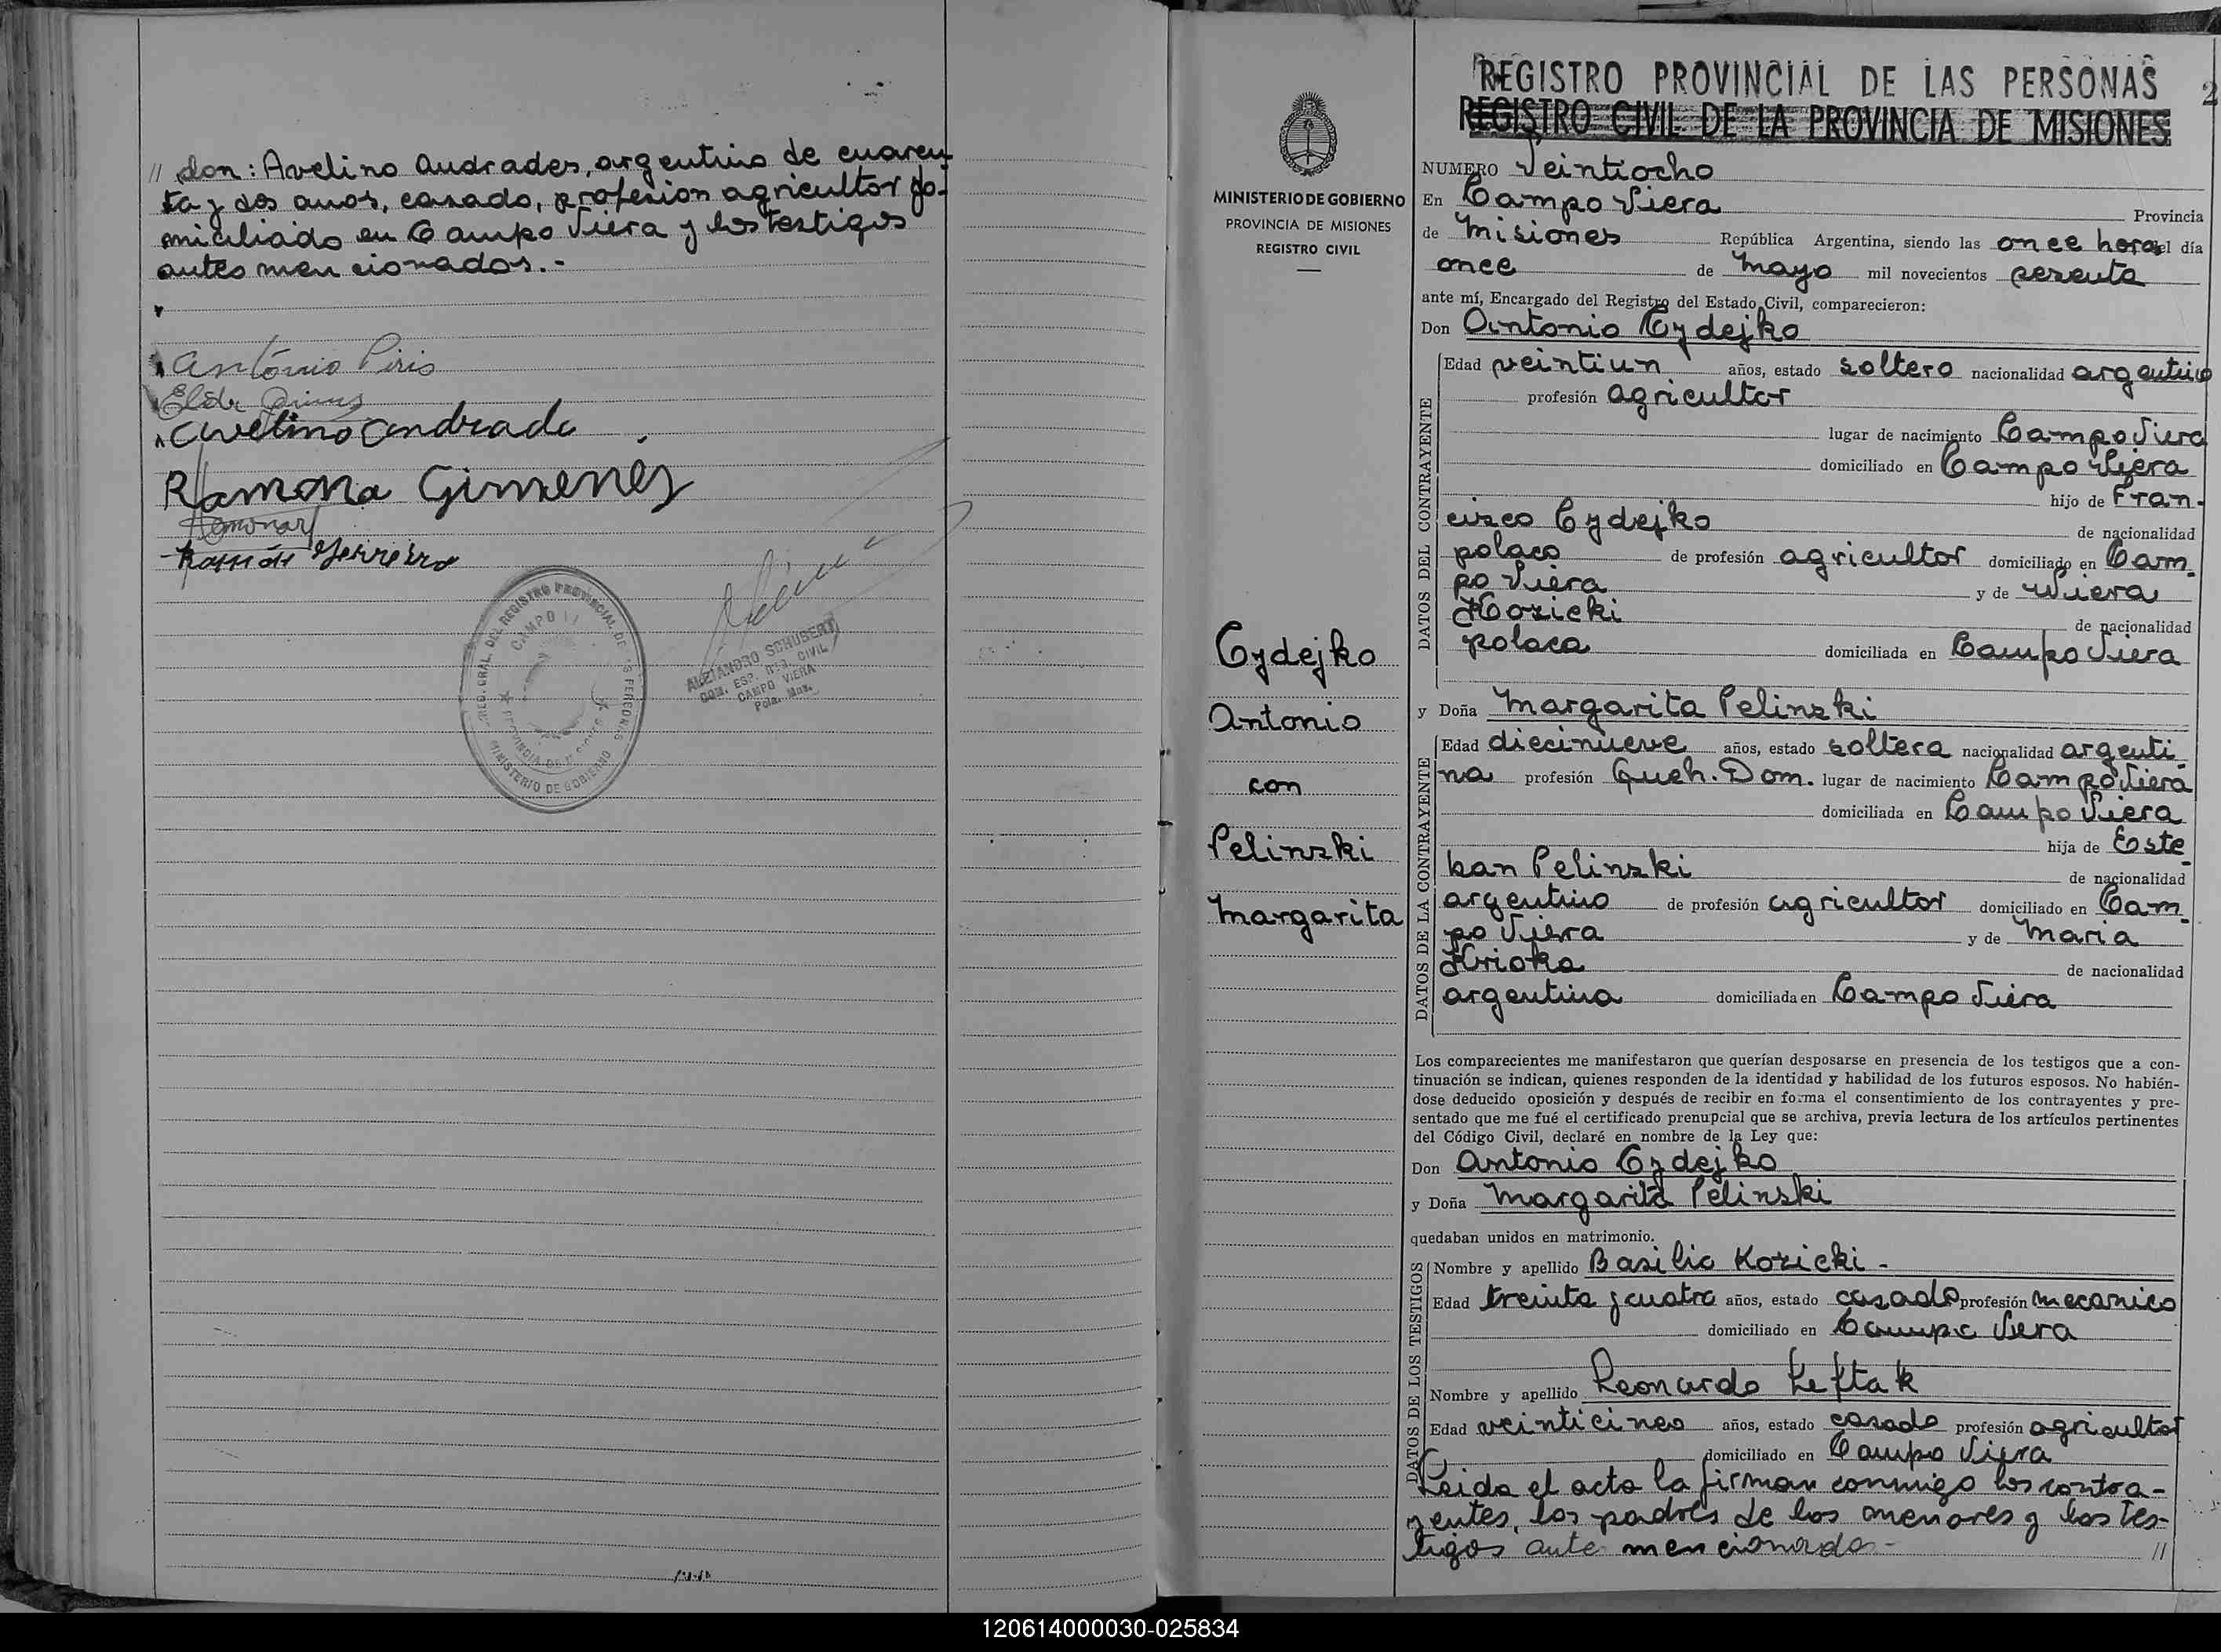 // don: Avelino Andrades, argentino de cuaren-
ta y dos anos, casado, profesion agricultor do-
miciliado en Campo Viera y los testigos
antes mencionados.-
António Piris
Avelino Andrade
Ramona Gimenes
Ramón Ferreira
REG. GRAL. DEL REGISTRO PROVINCIAL DE LAS PERSONAS
MINISTERIO DE GOBIERNO
PROVINCIA DE MISIONES
ALEJANDRO SCHUBERT
CAMPO VIERA
REGISTRO PROVINCIAL DE LAS PERSONAS
REGISTRO CIVIL DE LA PROVINCIA DE MISIONES
2
MINISTERIO DE GOBIERNO
PROVINCIA DE MISIONES
REGISTRO CIVIL
Cydejko
Antonio
con
Pelinski
Margarita
NUMERO Veintiocho
En Campo Viera Provincia
de Misiones República Argentina, siendo las once horas del día
once de Mayo mil novecientos sesenta
ante mí, Encargado del Registro del Estado Civil, comparecieron:
Don Antonio Cydejko
DATOS DEL CONTRAYENTE
Edad veintiun años, estado soltero nacionalidad argentino
profesión agricultor
lugar de nacimiento Campo Viera
domiciliado en Campo Viera
hijo de Fran-
cisco Cydejko de nacionalidad
polaco de profesión agricultor domiciliado en Cam-
po Viera y de Wiera
Kozicki de nacionalidad
polaca domiciliada en Campo Viera
y Doña Margarita Pelinski
DATOS DE LA CONTRAYENTE
Edad diecinueve años, estado soltera nacionalidad argenti-
na profesión Queh. Dom. lugar de nacimiento Campo Viera
domiciliada en Campo Viera
hija de Este-
ban Pelinski de nacionalidad
argentino de profesión agricultor domiciliado en Cam-
po Viera y de Maria
de nacionalidad
argentina domiciliada en Campo Viera
Los comparecientes me manifestaron que querían desposarse en presencia de los testigos que a con-
tinuación se indican, quienes responden de la identidad y habilidad de los futuros esposos. No habién-
dose deducido oposición y después de recibir en forma el consentimiento de los contrayentes y pre-
sentado que me fué el certificado prenupcial que se archiva, previa lectura de los artículos pertinentes
del Código Civil, declaré en nombre de la Ley que:
Don Antonio Cydejko
y Doña Margarita Pelinski
quedaban unidos en matrimonio.
DATOS DE LOS TESTIGOS
Nombre y apellido Basilio Kozicki -
Edad treinta y cuatro años, estado casado profesión mecanico
domiciliado en Campo Viera
Nombre y apellido Leonardo Leftak
Edad veinticinco años, estado casado profesión agricultor
domiciliado en Campo Viera
Leida el acta la firman conmigo los contra-
yentes, los padres de los menores y los tes-
tigos ante mencionado - //
120614000030-025834